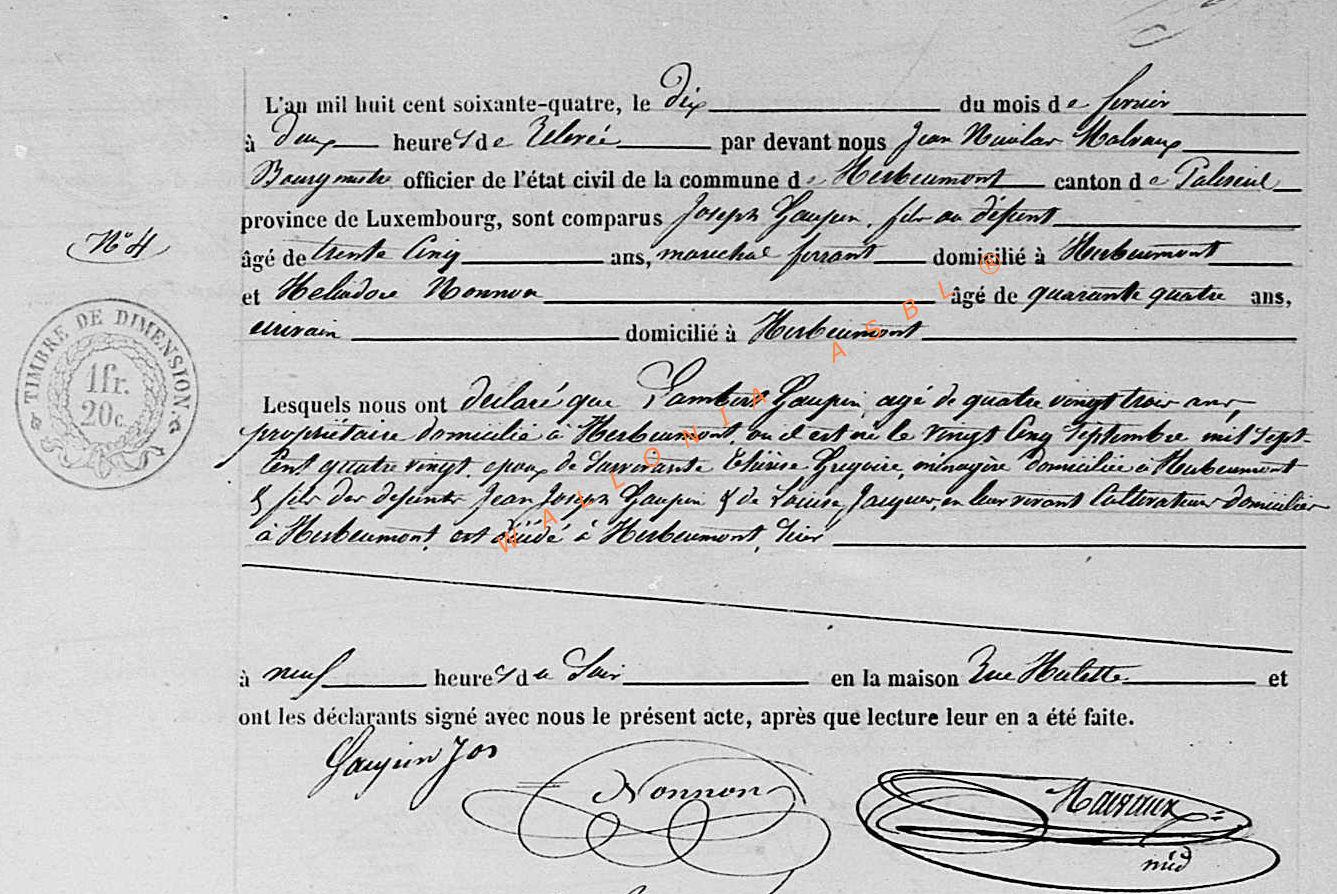 L'an mil huit cent soixante-quatre, le dix du mois de fevrier
à deux heures de relevée par devant nous Jean Nicolas Malvaux
Bourgmestre officier de l'état civil de la commune de Herbeumont canton de Paliseul
province de Luxembourg, sont comparus Joseph Gaupin, fils au défunt
N° 4
âgé de trente cinq ans, marechal ferrant domicilié à Herbeumont
et Heliodore Nonnon âgé de quarante quatre ans,
ecrivain domicilié à Herbeumont
TIMBRE DE DIMENSION.
1 fr.
20 c.
Lesquels nous ont declaré que Lambert Gaupin, agé de quatre vingt trois ans,
propriétaire domicilié à Herbeumont, ou il est né le vingt Cinq Septembre mil sept-
Cent quatre vingt, epoux de survivante Thérèse Gregoire, ménagère domiciliée à Herbeumont
& fils des defunts Jean Joseph Gaupin & de Louise Jacques, en leur vivant Cultivateurs domiciliés
à Herbeumont, est décédé à Herbeumont, hier
WALLONIA ASBL ®
à neuf heures du Soir en la maison Rue Hulette et
ont les déclarants signé avec nous le présent acte, après que lecture leur en a été faite.
Gaupin Jos Nonnon Malvaux